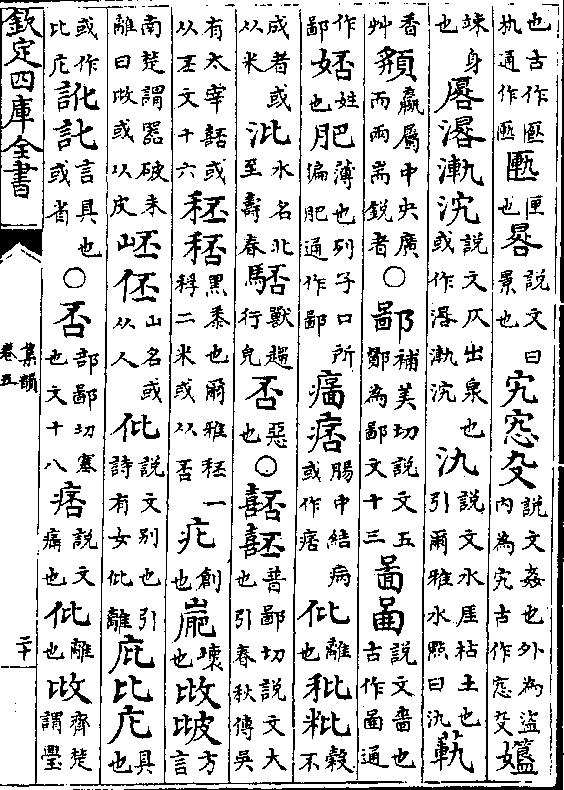 也古作匭朹通作匭匭匣也晷說文曰景也宄殳說文姦也外為盜内為宄古作殳
竦身也厬氿說文仄出泉也或作氿氿說文水厓枯土也引爾雅水醮曰氿
香艸頯羸屬中央廣而兩耑銳者○鄙補美切說文五酇為鄙文十三啚說文嗇也古作啚通
作鄙娝姓也肥薄也列子口所偏肥通作鄙痞腸中結病或作痞仳離也秕粃穀不
成者或从米沘水名北至壽春獸趨行皃否惡也○嚭普鄙切說文大也引春秋傳吳
有太宰嚭或从丕文十六秠䅭黑黍也爾雅秠一稃二米或从否疕創也嶏壞也方言
南楚謂器破未離曰或从皮岯伾山名或从人仳說文別也引詩有女仳離庇比庀具也
或作比庀言具也或省○否部鄙切塞也文十八痞說文痛也仳離也齊楚謂璺
欽定四庫全書
集韻
卷五
二十